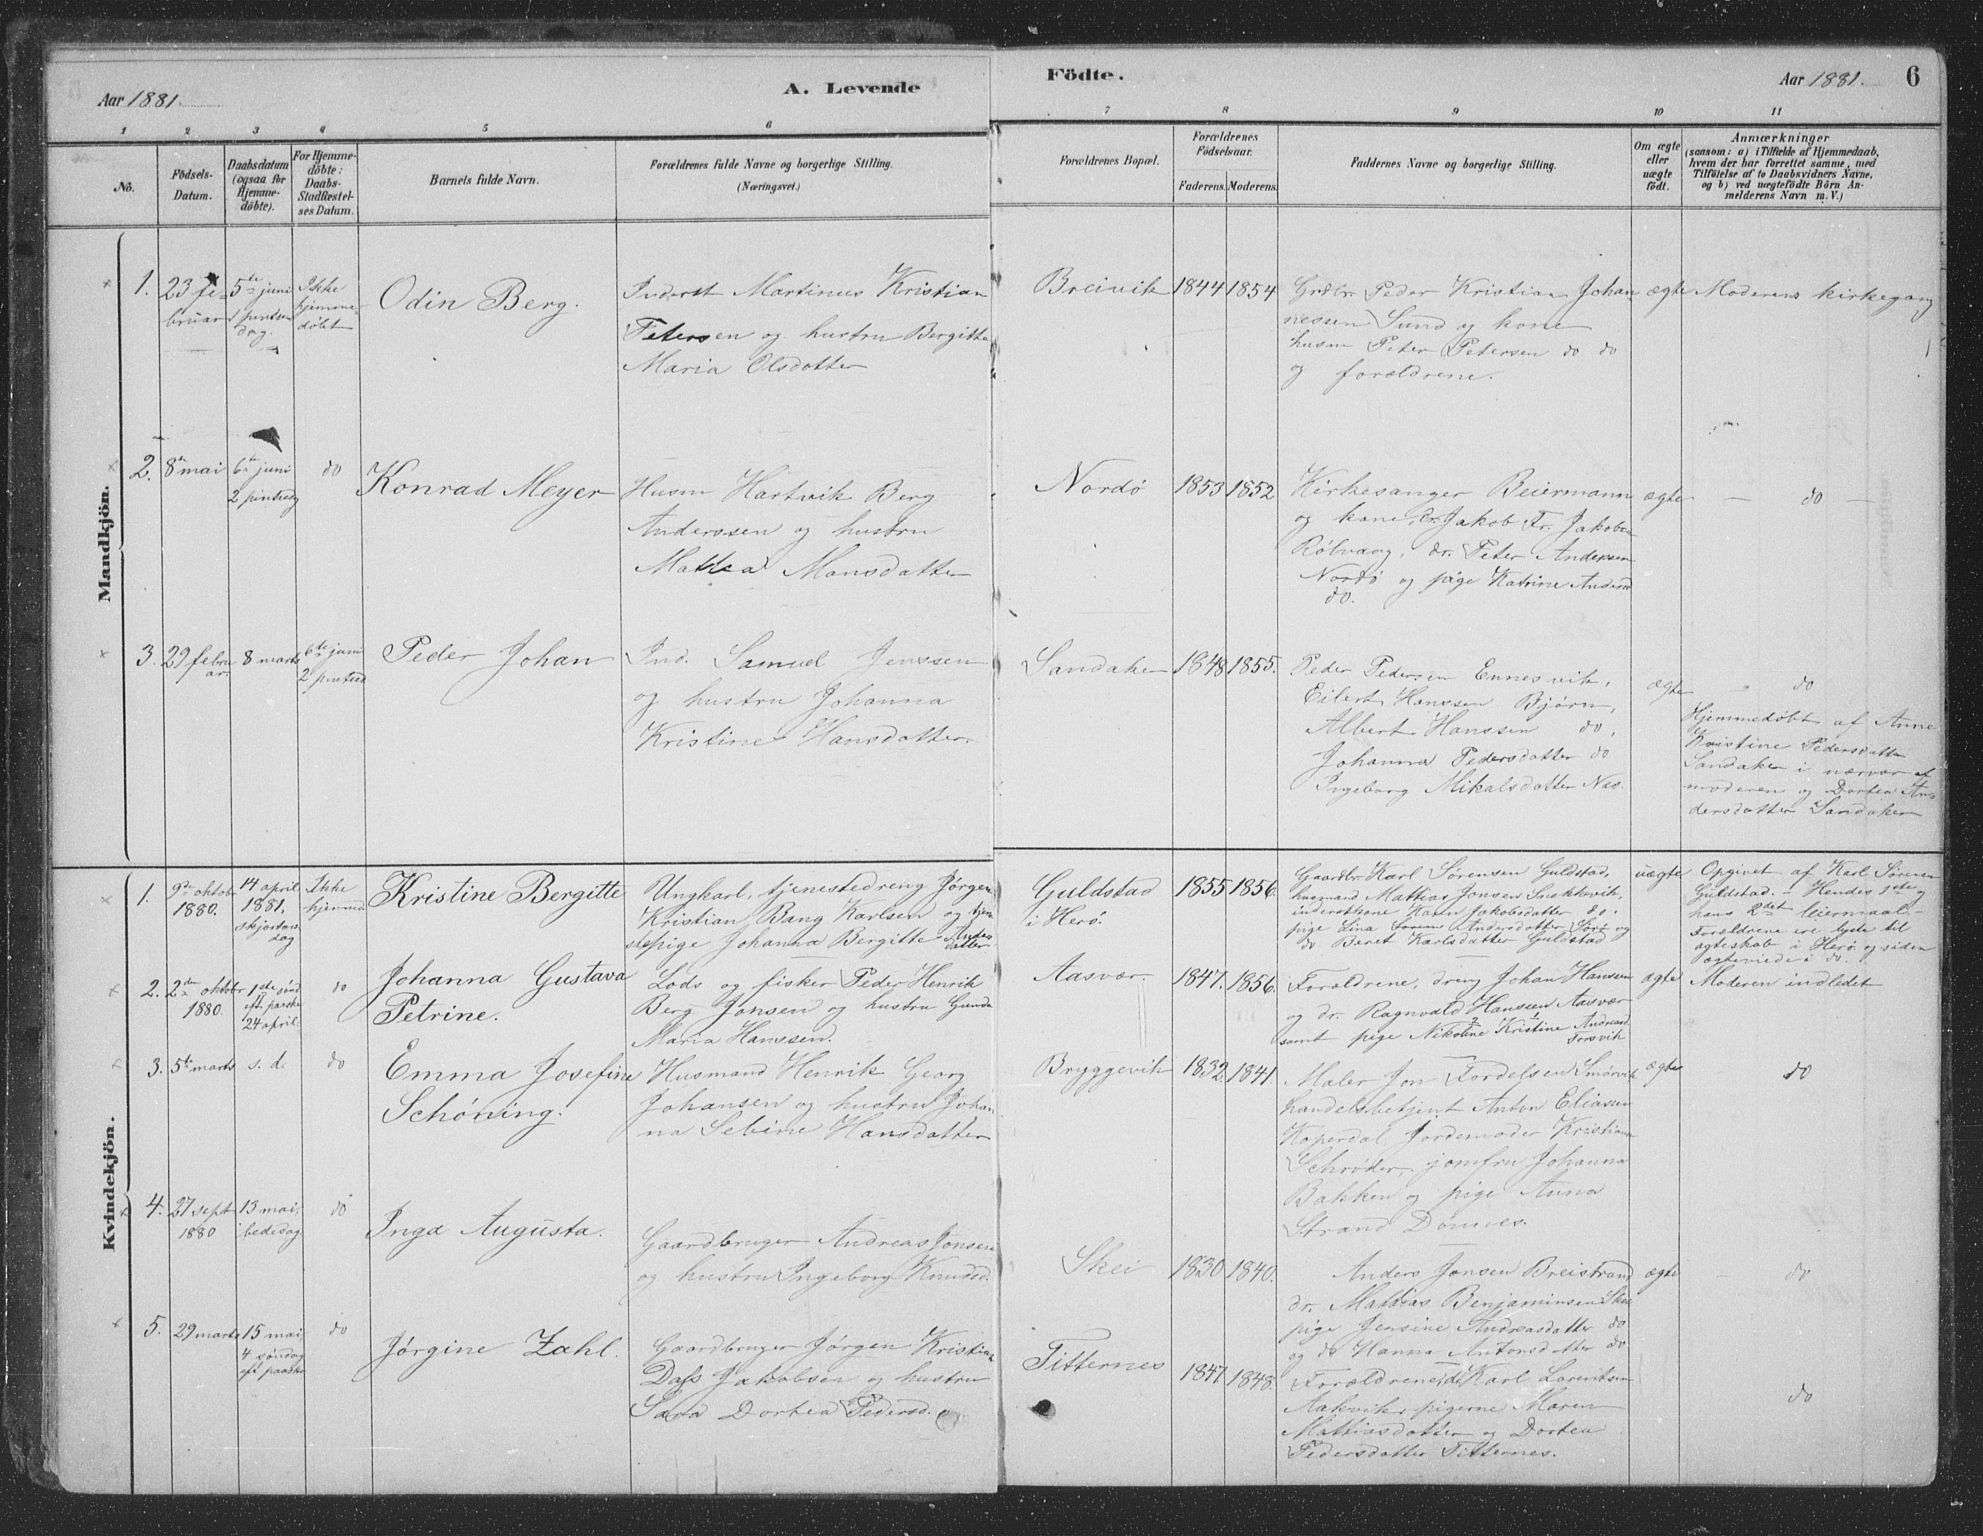 Aar 1881.
A. Levende
Födte.
Aar 1881.
6
1 2 3 4 5 6 7 8 9 10 11
No.
Födsels-
Datum.
Daabsdatum
(ogsaa for
Hjemme-
döbte).
For Hjemme-
döbte:
Daabs-
Stadfæstel-
ses Datum.
Barnets fulde Navn.
Forældrenes fulde Navne og borgerlige Stilling.
(Næringsvei.)
Forældrenes Bopæl.
Forældrenes
Födselsaar.
Faderens. Moderens.
Faddernes Navne og borgerlige Stilling.
Om ægte
eller
uægte
födt.
Anmærkninger
(saasom: a) i Tilfælde af Hjemmedaab,
hvem der har forrettet samme, med
Tilföielse af to Daabsvidners Navne,
og b) ved uægtefödte Börn An-
melderens Navn m. V.)
Mandkjön.
1.
23 fe-
bruar
5te juni
1 pintse
dag.
Ikke
hjemme-
døbt
Odin Berg.
Inderst Martinus Kristian
Petersen og hustru Bergitte
Maria Olsdatter
Breivik
1844 1854
Grdbr. Peder Kristian Johan
nessen Sund og kone
husm Peter Petersen do do
og forældrene.
ægte
Moderens kirkegang
2.
8de mai
6te juni
2 pintsedg
do
Konrad Meyer
Husm Hartvik Berg
Anderssen og hustru
Mattea Monsdatter
Nordø
1853 1852
Kirkesanger Beiermann
og kone, dr. Jakob Fr. Jakobsen
Rølvaag, dr. Peter Andersen
Nordø og pige Katrine Andersd
do.
ægte
— do —
3.
29 febru
ar.
8 marts
6te juni
2 pintsed
Peder Johan
Ind. Samuel Jenssen
og hustru Johanna
Kristine Hansdatter.
Sandaker
1848 1855.
Peder Pedersen Ennesvik,
Eilert Hanssen Bjørn,
Albert Hanssen do,
Johanna Pedersdatter do
Ingeborg Mikalsdatter Nes.
ægte
— do
Hjemmedøbt af Anne
Kristine Pedersdatter
Sandaker i nærvær af
moderen og Dortea An-
dersdatter Sandaker
Kvindekjön.
1.
9de oktob
1880.
14 april
1881,
skjærtors
dag
Ikke
hjemmed
Kristine Bergitte
Ungkarl, tjenestedreng Jørgen
Kristian Bang Karlsen og tjene
stepige Johanna Bergitte Anders
datter
Guldstad
i Herø.
1855 1856.
Gaardbr Karl Sørensen Guldstad,
husmand Mattias Jonsen Snekkevik,
inderstkone Karen Jakobsdatter do.
pige Lina Andersdatter og
do Beret Karlsdatter Guldstad
uægte
Opgivet af Karl Sørensen
Guldstad. — Hendes 1ste og
hans 2det leiermaal. —
Forældrene ere lyste til
ægteskab i Herø og siden
ægteviede i do.
2.
2den oktobr
1880.
1ste sønd
eft. paaske
24 april.
do
Johanna Gustava
Petrine.
Lods og fisker Peder Henrik
Berg Jonsen og hustru Gunda
Maria Hanssen.
Aasvær.
1847. 1856.
Forældrene, dreng Johan Hansen
og dr. Ragnvald Hanssen Aasvær
samt pige Nikoline Kristine Andreasd
Forsvik
ægte
Moderen indledet
3.
5te marts
s. d.
do
Emma Josefine
Schöning.
Husmand Henrik Georg
Johansen og hustru Johan
na Sebine Hansdatter
Bryggevik
1832. 1841
Maler Jon Fordelsen Smørvik
handelsbetjent Anton Eliassen
Koperdal, Jordemoder Kristiana
Schrøder, jomfru Johanna
Bakken og pige Anna
Strand Dønnes.
ægte
do
4.
27 sept
1880
13 mai,
bededag
do
Inga Augusta.
Gaardbruger Andreas Jonsen
og hustru Ingeborg Knudsd.
Skei
1830 1840.
Anders Jonsen Breistrand
dr. Mattias Benjaminsen Skei
pige Jensine Andreasdatter do
og do Hanna Antonsdatter do
ægte
— do
5.
29 marts
15 mai
4 søndag
eft paaske
do
Jørgine Zahl.
Gaardbruger Jørgen Kristian
Dass Jakobsen og hustru
Sara Dortea Pedersd.
Titternes
1847 1848.
Forældrene, Karl Lorentsen
Aakvik, pigerne Maren
Mattiasdatter og Dortea
Pedersdatter Titternes.
do